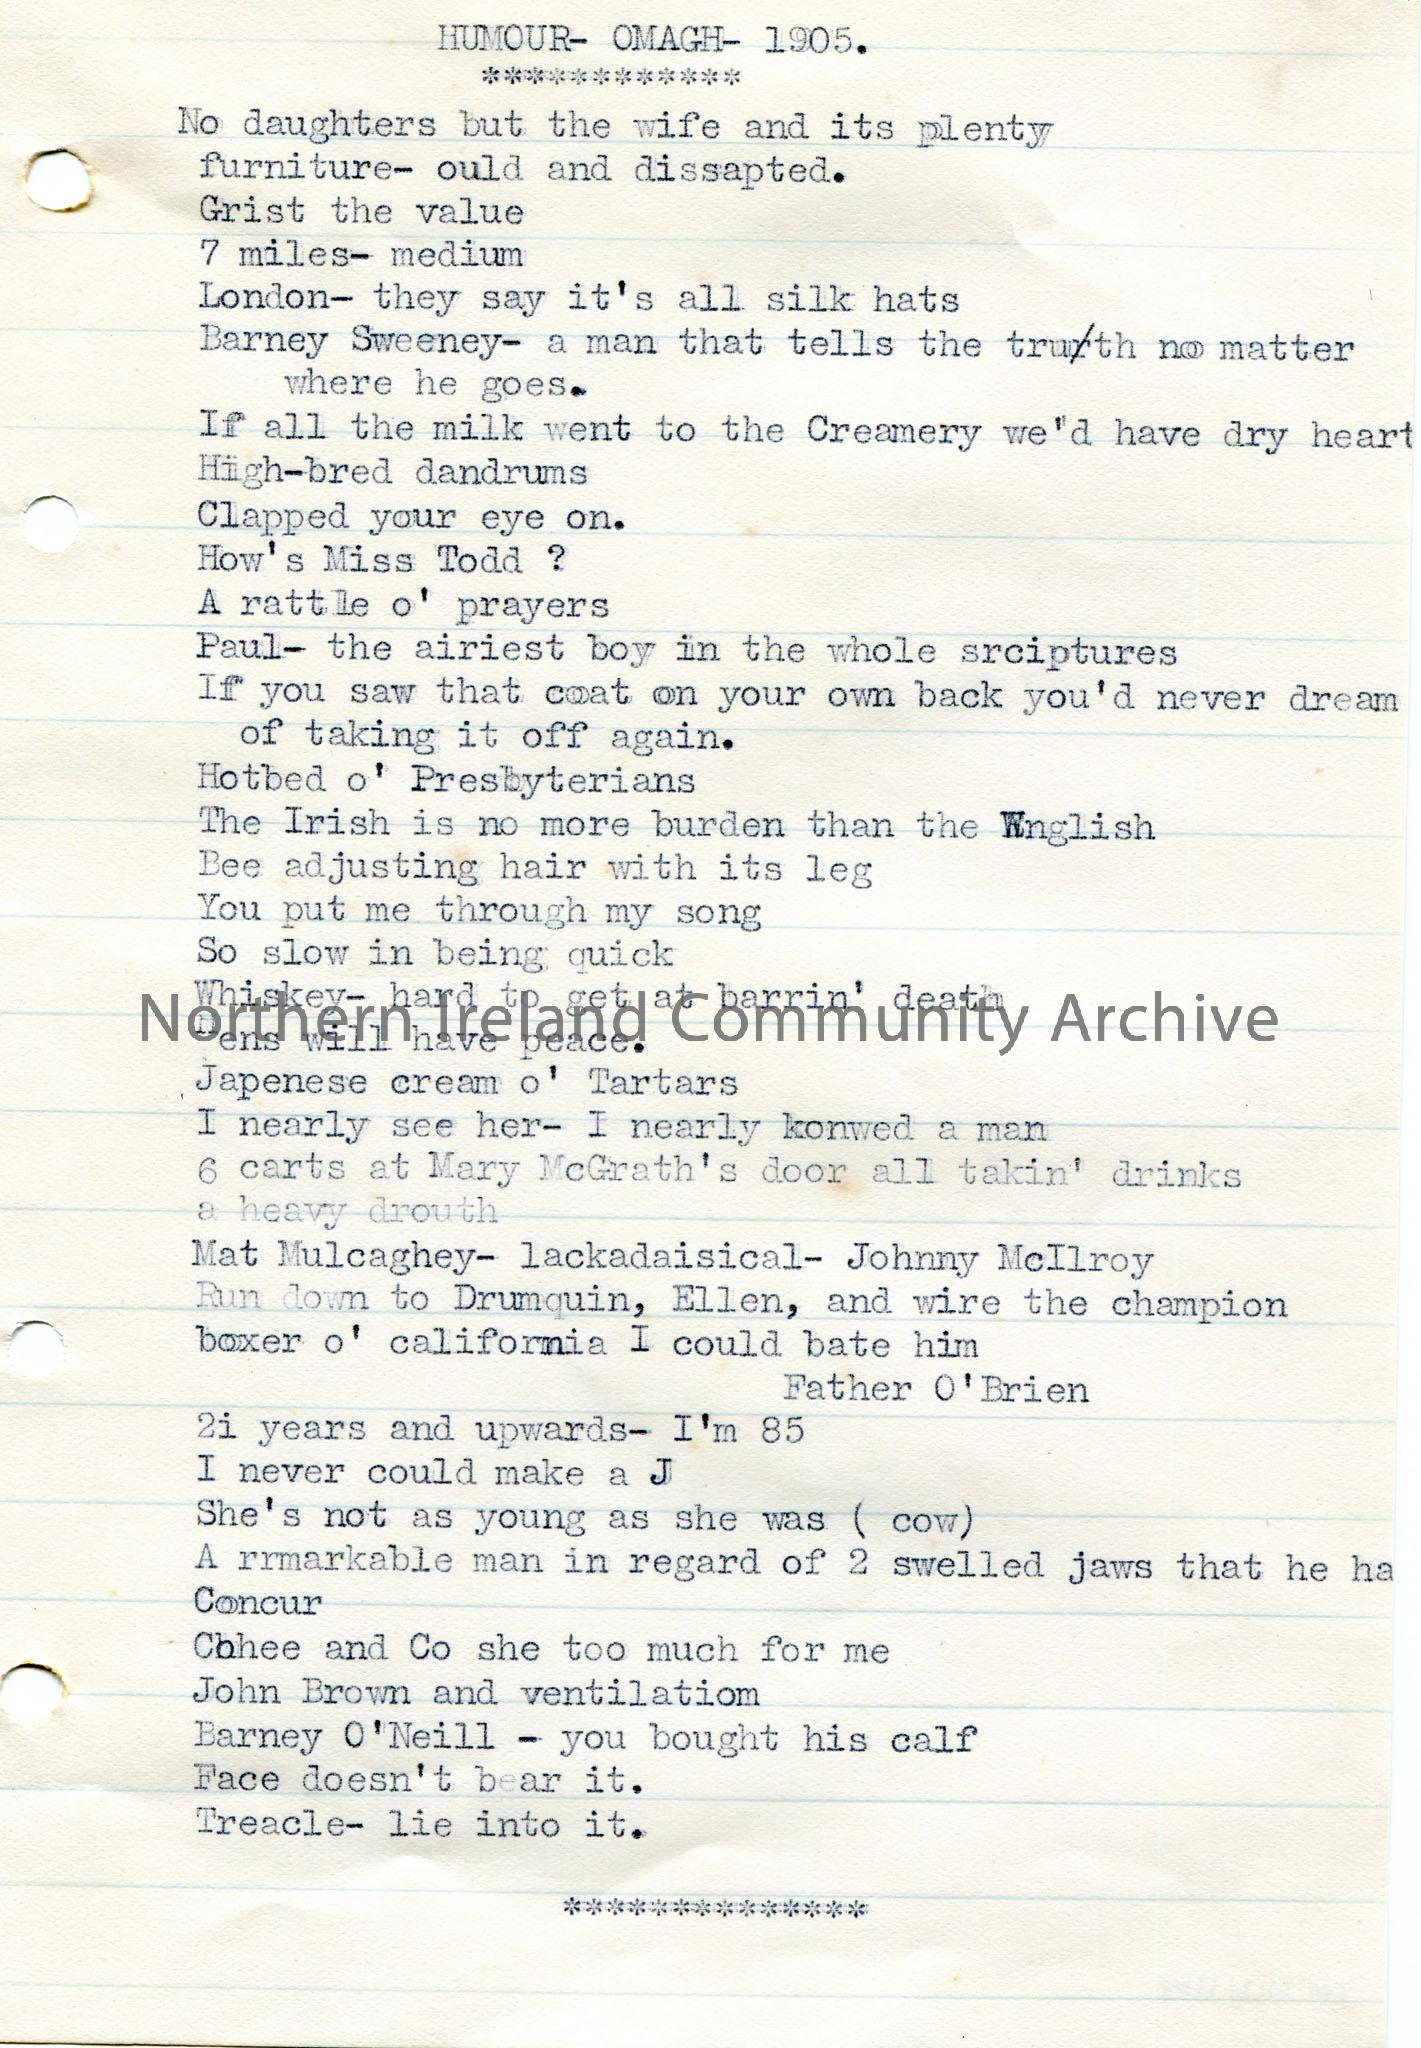 HUMOUR- OMAGH- 1905.
************
No daughters but the wife and its plenty
furniture- ould and dissapted.
Grist the value
7 miles- medium
London- they say it's all silk hats
Barney Sweeney- a man that tells the truth no matter
where he goes.
If all the milk went to the Creamery we'd have dry heart
High-bred dandrums
Clapped your eye on.
How's Miss Todd ?
A rattle o' prayers
Paul- the airiest boy in the whole srciptures
If you saw that coat on your own back you'd never dream
of taking it off again.
Hotbed o' Presbyterians
The Irish is no more burden than the Wnglish
Bee adjusting hair with its leg
You put me through my song
So slow in being quick
Whiskey- hard to get at barrin' death
Northern Ireland Community Archive
Pens will have peace.
Japenese cream o' Tartars
I nearly see her- I nearly konwed a man
6 carts at Mary McGrath's door all takin' drinks
a heavy drouth
Mat Mulcaghey- lackadaisical- Johnny McIlroy
Run down to Drumquin, Ellen, and wire the champion
boxer o' california I could bate him
Father O'Brien
2i years and upwards- I'm 85
I never could make a J
She's not as young as she was ( cow)
A rrmarkable man in regard of 2 swelled jaws that he ha
Concur
and Co she too much for me
John Brown and ventilatiom
Barney O'Neill - you bought his calf
Face doesn't bear it.
Treacle- lie into it.
**************